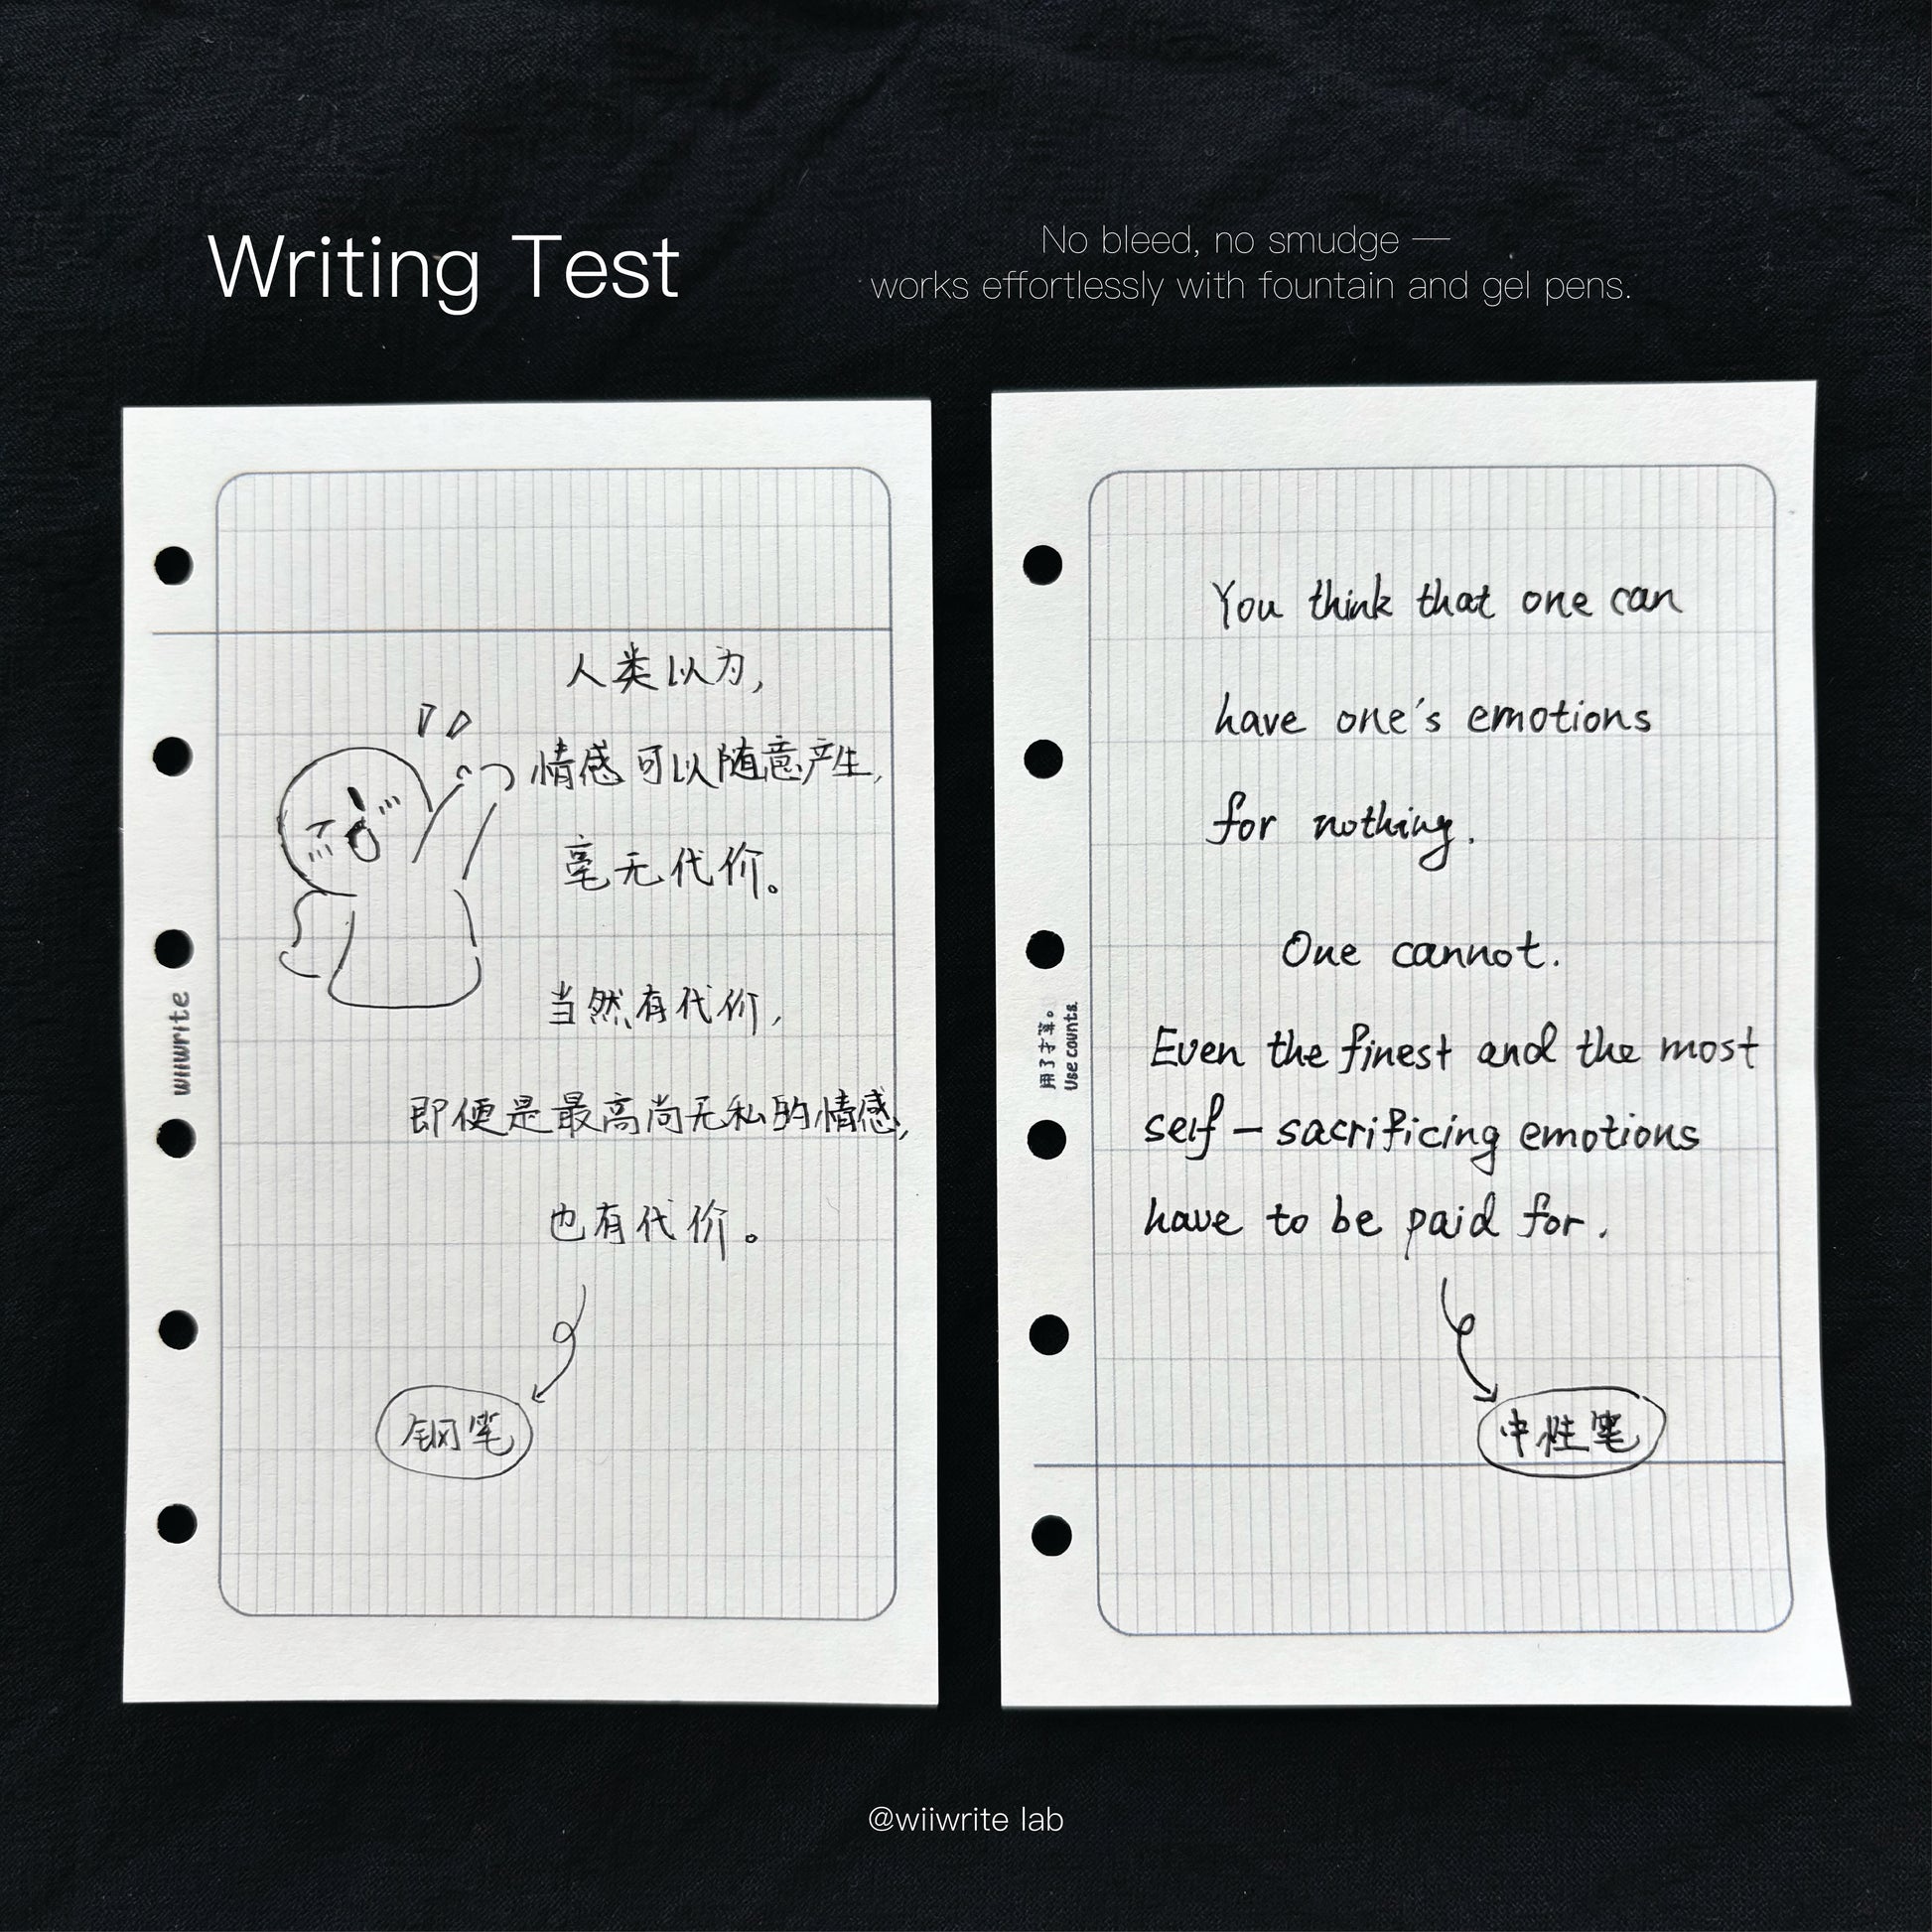 Writing Test
No bleed, no smudge —
works effortlessly with fountain and gel pens.
人类以为,
情感可以随意产生,
毫无代价。
当然有代价,
即便是最高尚无私的情感,
也有代价。
钢笔
wiiwrite
You think that one can
have one's emotions
for nothing.
One cannot.
Even the finest and the most
self-sacrificing emotions
have to be paid for.
中性笔
用了才算。
Use counts.
@wiiwrite lab